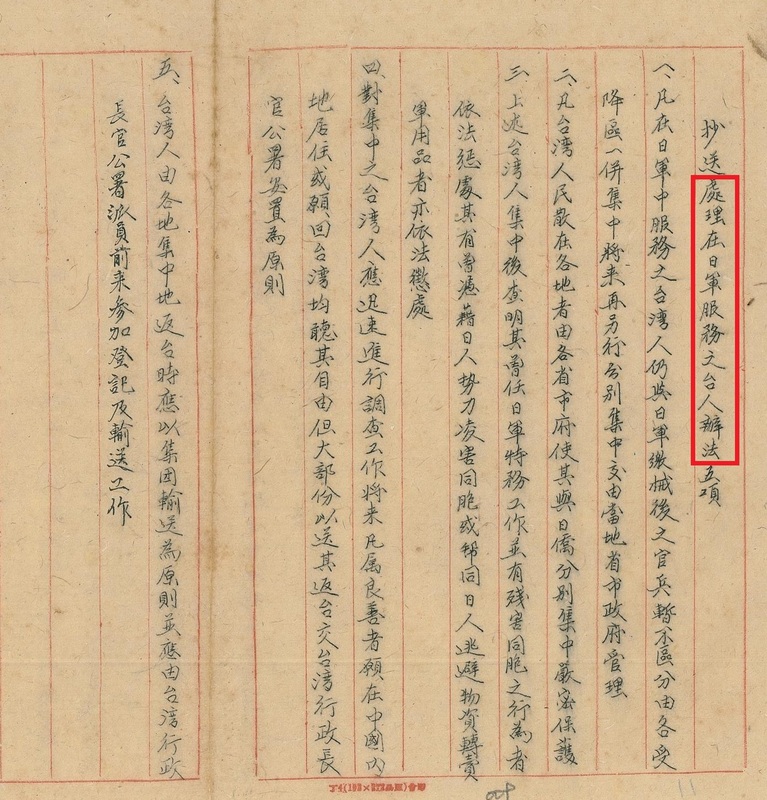 抄送處理在日軍服務之台人辦法五項
一、凡在日軍中服務之台湾人仍與日軍繳械後之官兵暫不區分由各受
降區一併集中將来再另行分别集中交由當地省市政府管理
二、凡台湾人民散在各地者由各省市府使其與日僑分别集中嚴密保護
三、上述台湾人集中後查明其曾任日軍特務工作並有殘害同胞之行為者
依法懲處其有曾憑藉日人势力凌害同胞或帮同日人逃避物資轉賣
軍用品者亦依法懲處
四、對集中之台湾人應迅速進行調查工作將来凡属良善者願在中國内
地居住或願回台湾均聽其自由但大部份以送其返台交台湾行政長
官公署安置為原則
五、台湾人由各地集中地返台時應以集团輸送為原則並應由台湾行政
長官公署派員前来参加登記及輸送工作
11